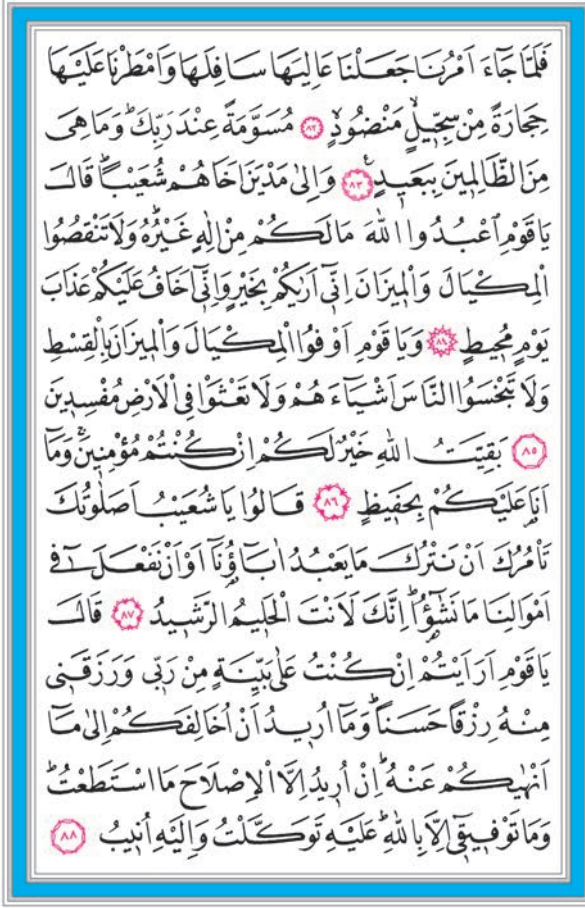 فَلَمَّا جَٓاءَ اَمْرُنَا جَعَلْنَا عَالِيَهَا سَافِلَهَا وَاَمْطَرْنَا عَلَيْهَا
حِجَارَةً مِنْ سِجّ۪يلٍ مَنْضُودٍۙ ﴿٨٢﴾ مُسَوَّمَةً عِنْدَ رَبِّكَۜ وَمَا هِيَ
مِنَ الظَّالِم۪ينَ بِبَع۪يدٍ۟ ﴿٨٣﴾ وَاِلٰى مَدْيَنَ اَخَاهُمْ شُعَيْبًاۜ قَالَ
يَا قَوْمِ اعْبُدُوا اللّٰهَ مَا لَكُمْ مِنْ اِلٰهٍ غَيْرُهُۜ وَلَا تَنْقُصُوا
الْمِكْيَالَ وَالْم۪يزَانَ اِنّ۪ٓي اَرٰيكُمْ بِخَيْرٍ وَاِنّ۪ٓي اَخَافُ عَلَيْكُمْ عَذَابَ
يَوْمٍ مُح۪يطٍ ﴿٨٤﴾ وَيَا قَوْمِ اَوْفُوا الْمِكْيَالَ وَالْم۪يزَانَ بِالْقِسْطِ
وَلَا تَبْخَسُوا النَّاسَ اَشْيَٓاءَهُمْ وَلَا تَعْثَوْا فِي الْاَرْضِ مُفْسِد۪ينَ
﴿٨٥﴾ بَقِيَّتُ اللّٰهِ خَيْرٌ لَكُمْ اِنْ كُنْتُمْ مُؤْمِن۪ينَۚ وَمَٓا
اَنَا۬ عَلَيْكُمْ بِحَف۪يظٍ ﴿٨٦﴾ قَالُوا يَا شُعَيْبُ اَصَلٰوتُكَ
تَأْمُرُكَ اَنْ نَتْرُكَ مَا يَعْبُدُ اٰبَٓاؤُ۬نَٓا اَوْ اَنْ نَفْعَلَ ف۪ٓي
اَمْوَالِنَا مَا نَشٰٓؤُ۬اۜ اِنَّكَ لَاَنْتَ الْحَل۪يمُ الرَّش۪يدُ ﴿٨٧﴾ قَالَ
يَا قَوْمِ اَرَاَيْتُمْ اِنْ كُنْتُ عَلٰى بَيِّنَةٍ مِنْ رَبّ۪ي وَرَزَقَن۪ي
مِنْهُ رِزْقًا حَسَنًاۜ وَمَٓا اُر۪يدُ اَنْ اُخَالِفَكُمْ اِلٰى مَٓا
اَنْهٰيكُمْ عَنْهُۜ اِنْ اُر۪يدُ اِلَّا الْاِصْلَاحَ مَا اسْتَطَعْتُۜ
وَمَا تَوْف۪يق۪ٓي اِلَّا بِاللّٰهِۜ عَلَيْهِ تَوَكَّلْتُ وَاِلَيْهِ اُن۪يبُ ﴿٨٨﴾